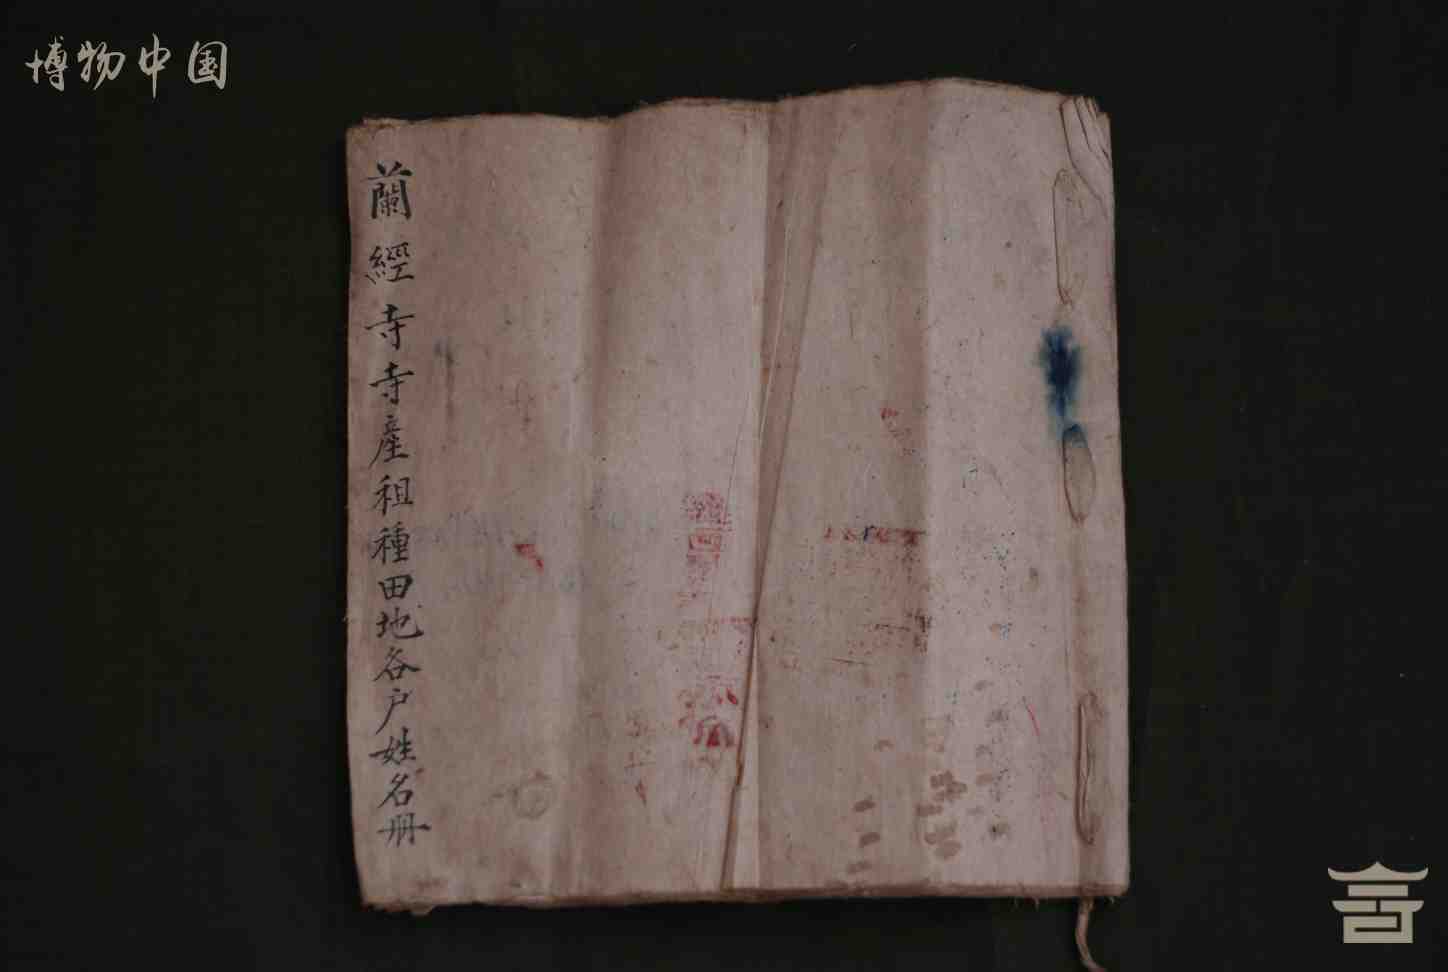 博物中国
蘭經寺寺產租種田地各户姓名册